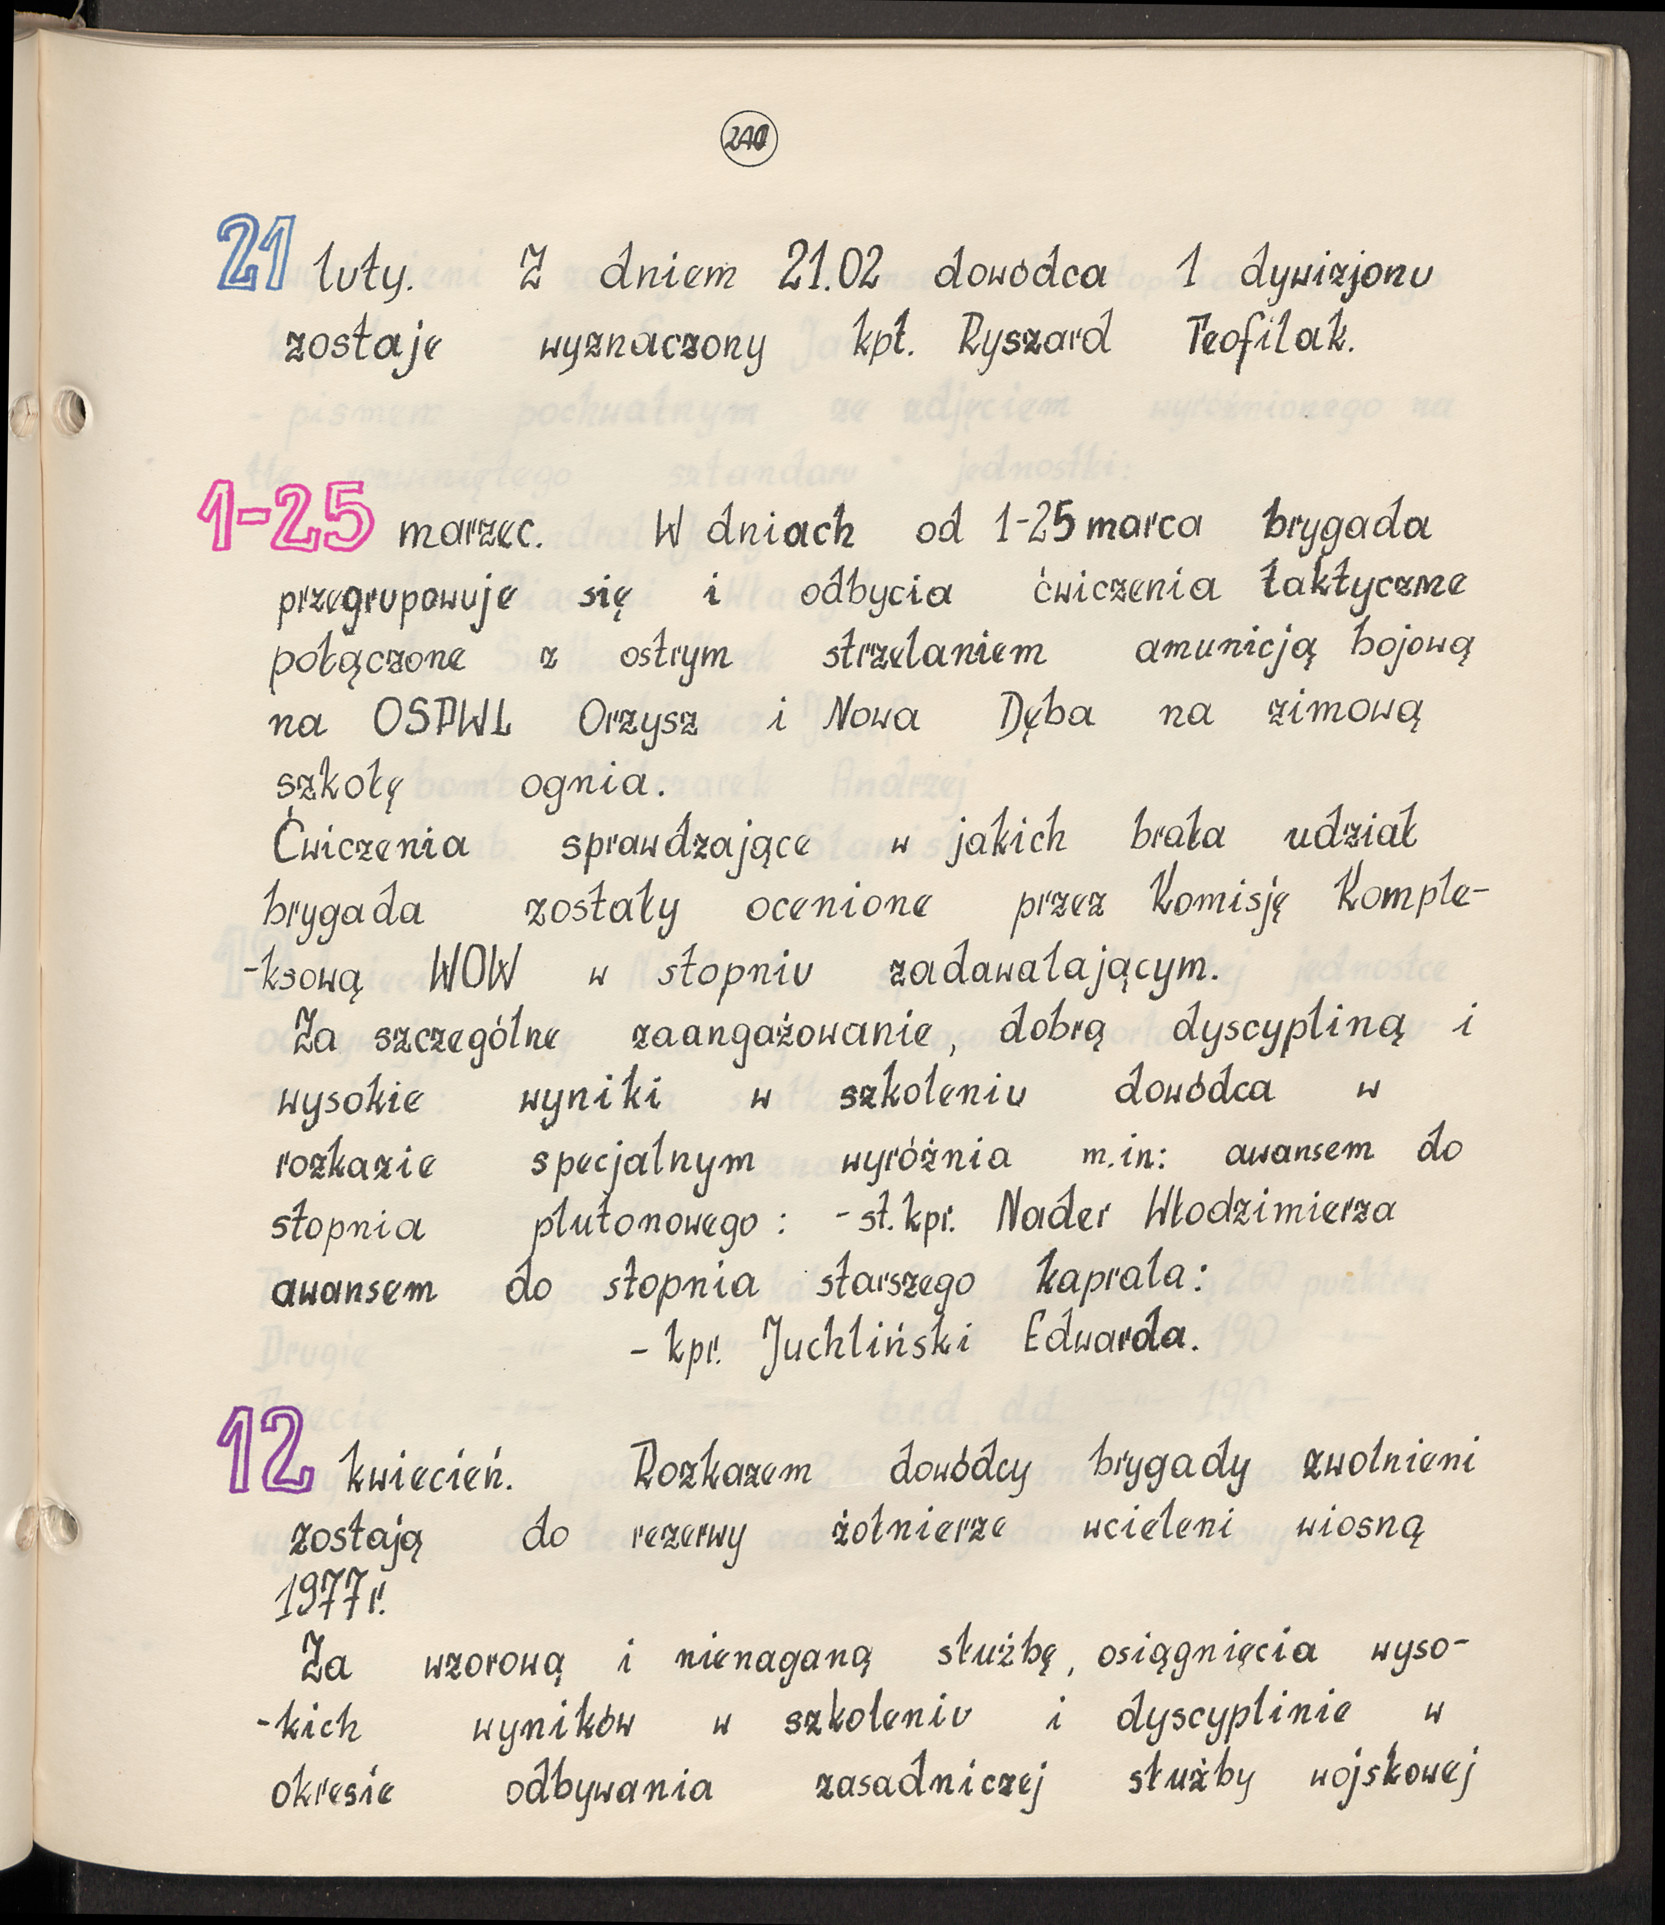 21 luty. Z dniem 21.02 dowódca 1 dywizjonu
zostaje wyznaczony kpt. Ryszard Teofilak.
1-25 marzec. W dniach od 1-25 marca brygada
przegrupowuje się i odbycia ćwiczenia taktyczne
połączone z ostrym strzelaniem amunicją bojową
na OSPWL Orzysz i Nowa Dęba na zimową
szkołę ognia.
Ćwiczenia sprawdzające w jakich brała udział
brygada zostały ocenione przez Komisję Komple-
-ksową WOW w stopniu zadawalającym.
Za szczególne zaangażowanie, dobrą dyscypliną i
wysokie wyniki w szkoleniu dowódca w
rozkazie specjalnym wyróżnia m.in: awansem do
stopnia plutonowego: - st. kpr. Nader Włodzimierza
awansem do stopnia starszego kaprala:
- kpr. Juchliński Edwarda.
12 kwiecień. Rozkazem dowódcy brygady zwolnieni
zostają do rezerwy żołnierze wcieleni wiosną
1977r.
Za wzorową i nienaganą służbę, osiągnięcia wyso-
-kich wyników w szkoleniu i dyscyplinie w
okresie odbywania zasadniczej służby wojskowej